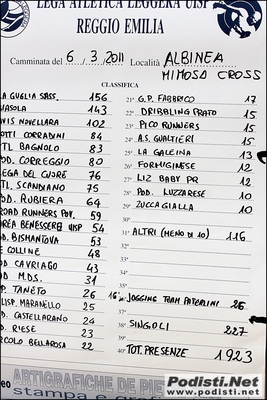 LEGA ATLETICA LEGGERA UISP
REGGIO EMILIA
Camminata del 6/3/2011 Località ALBINEA
MIMOSA CROSS
CLASSIFICA
LA GUGLIA SASS. 156
143
NOVELLARA 102
CORRADINI 84
BAGNOLO 83
CORREGGIO 80
DEL CUORE 76
SCANDIANO 75
POD. RUBIERA 64
ROAD RUNNERS POV. 59
BENESSERE UISP 54
POD. BISMANTOVA 53
COLLINE 48
CAVRIAGO 43
M.D.S. 31
TANETO 26
MARANELLO 25
POD. CASTELLARANO 24
POD. RIESE 23
CIRCOLO BELLAROSA 22
21° G.P. FABBRICO 17
22° DRIBBLING PRATO 15
23° PICO RUNNERS 15
24° A.S. GUALTIERI 15
25° LA GALEINA 13
26° FORMIGINESE 12
27° LIZ BABY PR 12
28° POD. LUZZARESE 10
29° ZUCCAGIALLA 10
30°
31° ALTRI (MENO DI 10) 116
16° JOGGING TEAM PATERLINI 26
38° SINGOLI 227
40° TOT. PRESENZE 1923
ARTIGRAFICHE DE PIE
stampa e
Podisti.Net
www.podisti.net